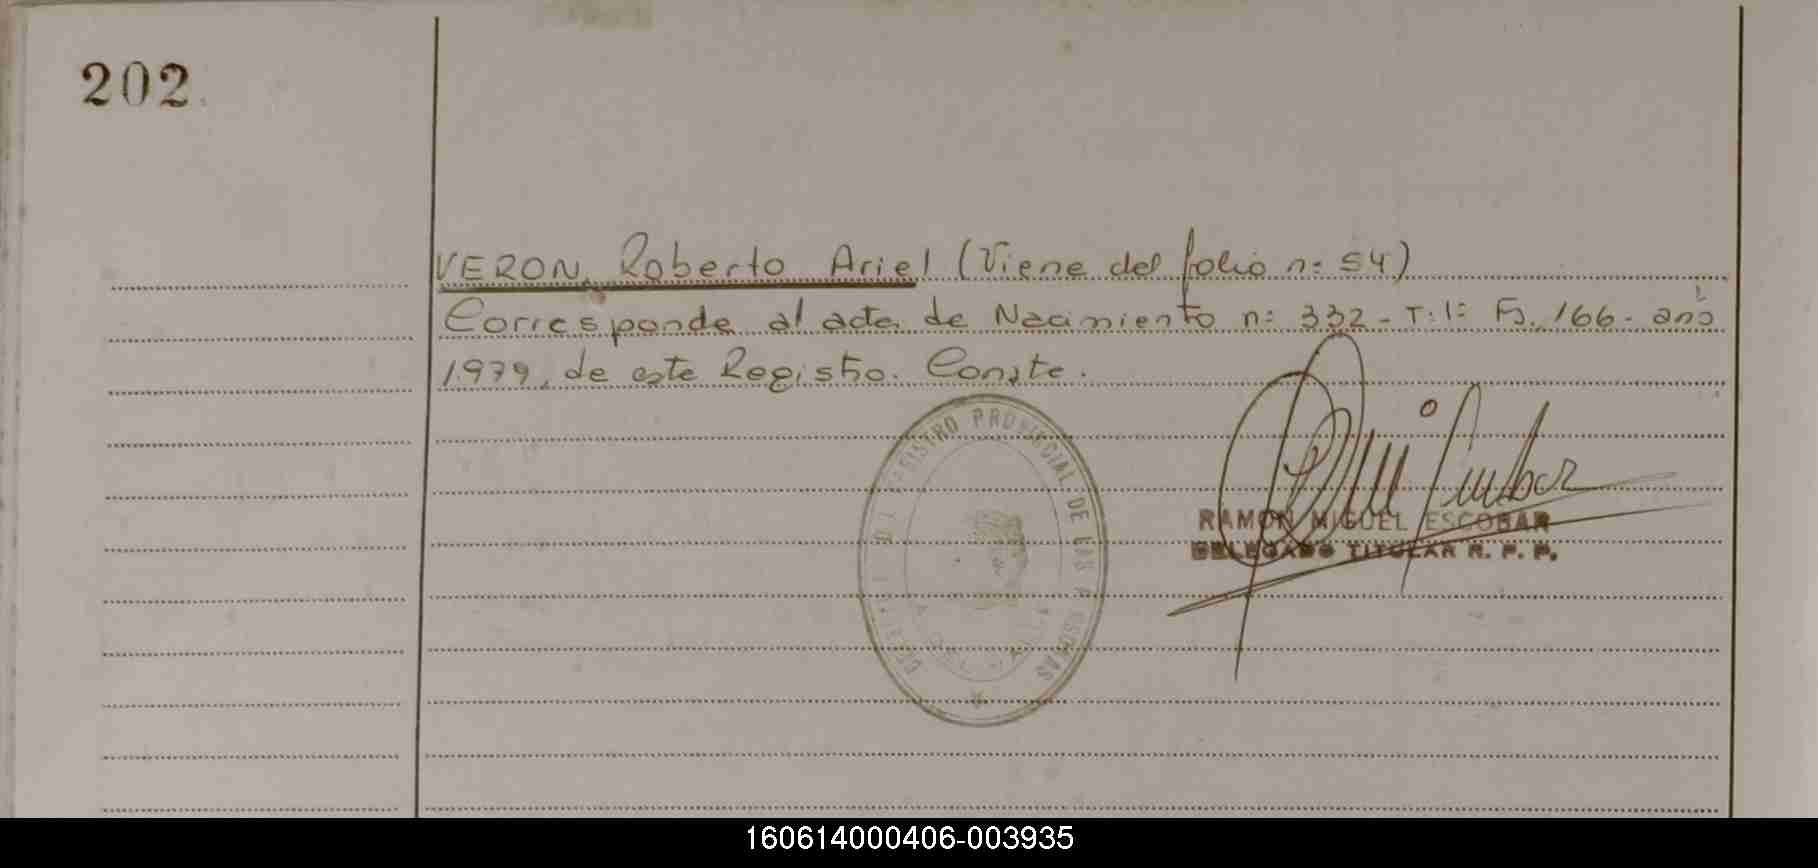 202.
VERON, Roberto Ariel (Viene del folio n: 54)
Corresponde al acta de Nacimiento n: 332 - T: 1: Fs. 166 - año
1979, de este Registro. Conste.
REGISTRO PROVINCIAL DE LAS PERSONAS
RAMON MIGUEL ESCOBAR
DELEGADO TITULAR R. P. P.
160614000406-003935